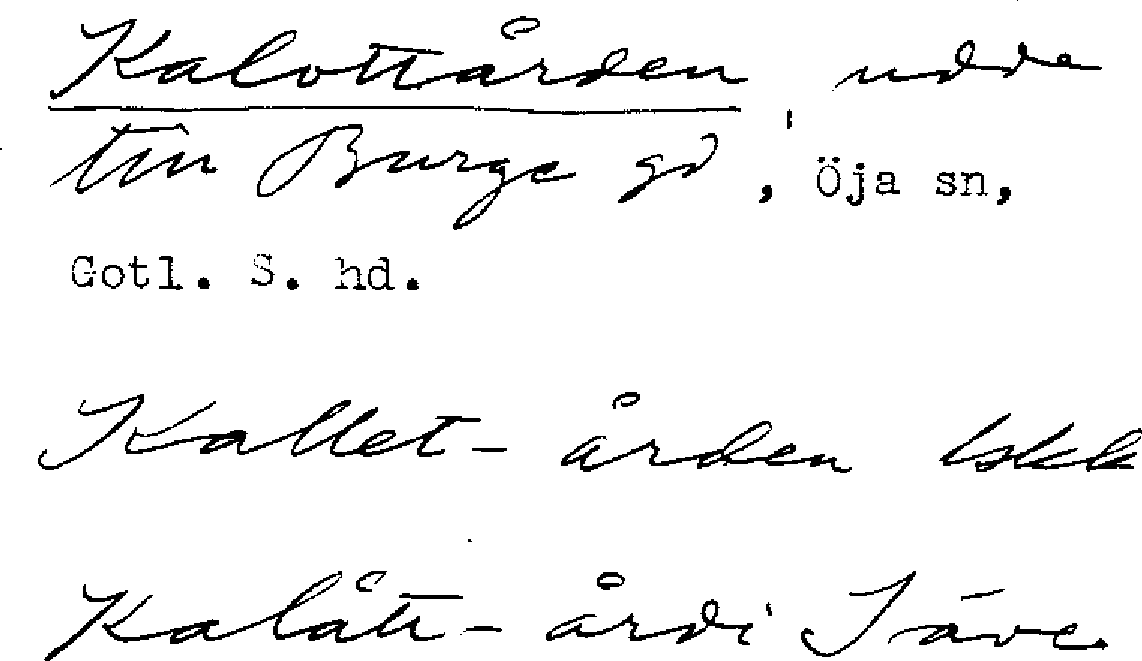 Kalottården, udde
till Burge gd, Öja sn,
Gotl. S. hd.
Kallet-ården lskk
Kalått-årdi Säve